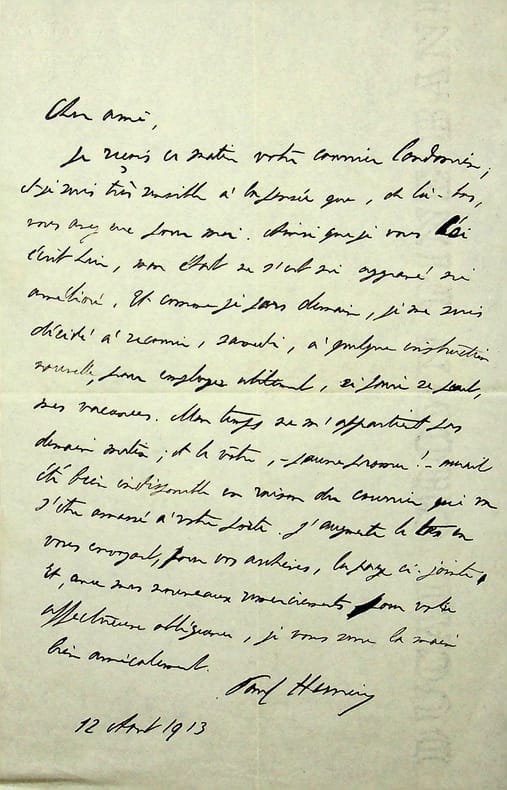 Cher ami,
Je reçois ce matin votre courrier Londonien ;
et je suis très sensible à la pensée que, de là-bas,
vous avez eue pour moi. Ainsi que je vous l'ai
écrit hier, mon état ne s'est ni aggravé ni
amélioré. Et comme je pars demain, je me suis
décidé à recourir, samedi, à quelque instruction
nouvelle, pour employer utilement, si faire se peut,
mes vacances. Mon temps ne m'appartient pas
demain matin ; et le vôtre, - ! - aurait
été bien indisponible en raison du courrier qui va
s'être amassé à votre porte. J'augmente le tas en
vous envoyant, pour vos archives, la page ci-jointe.
Et, avec mes nouveaux remerciements pour votre
affectueuse obligeance, je vous serre la main
bien amicalement.
Paul
12 Aout 1913